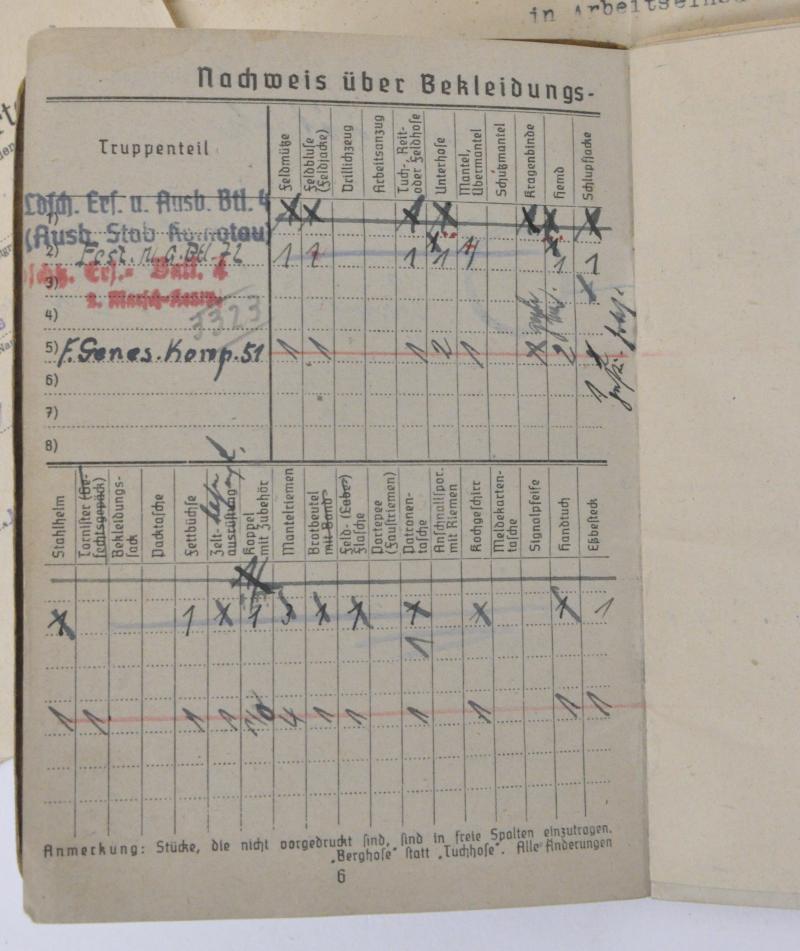 in Arbeitseins
Nachweis über Bekleidungs-
Truppenteil
Feldmütze
Feldbluse (Feldjacke)
Drillichzeug
Arbeitsanzug
Tuch-, Reit- oder Feldhose
Unterhose
Mantel, Übermantel
Schutzmantel
Kragenbinde
Hemd
Schlupfjacke
Ldsch. Ers. u. Ausb. Btl. 4
1) X X X X X X X
(Ausb. Stab Komotau)
2) Fest. Btl. 72 1 1 1 1 4 1 1
Ers.- Batl. 4
3)
4) 3323
5) F. Genes. Komp. 51 1 1 1 2 1 X 2
6) 1
7)
8)
Stahlhelm
Tornister (Gefechtsgepäck)
Bekleidungssack
Packtasche
Fettbüchse
Zeltausrüstung
Koppel mit Zubehör
Mantelriemen
Brotbeutel mit Band
Feld- (Labe-) flasche
Portepee (Faustriemen)
Patronentasche
Anschnallspor. mit Riemen
Kochgeschirr
Meldekartentasche
Signalpfeife
Handtuch
Eßbesteck
X 1 X 1 3 X X X X X 1
1
1 1 1 1 1/0 4 1 1 1 1 1 1
Anmerkung: Stücke, die nicht vorgedruckt sind, sind in freie Spalten einzutragen.
„Berghose“ statt „Tuchhose“. Alle Änderungen
6